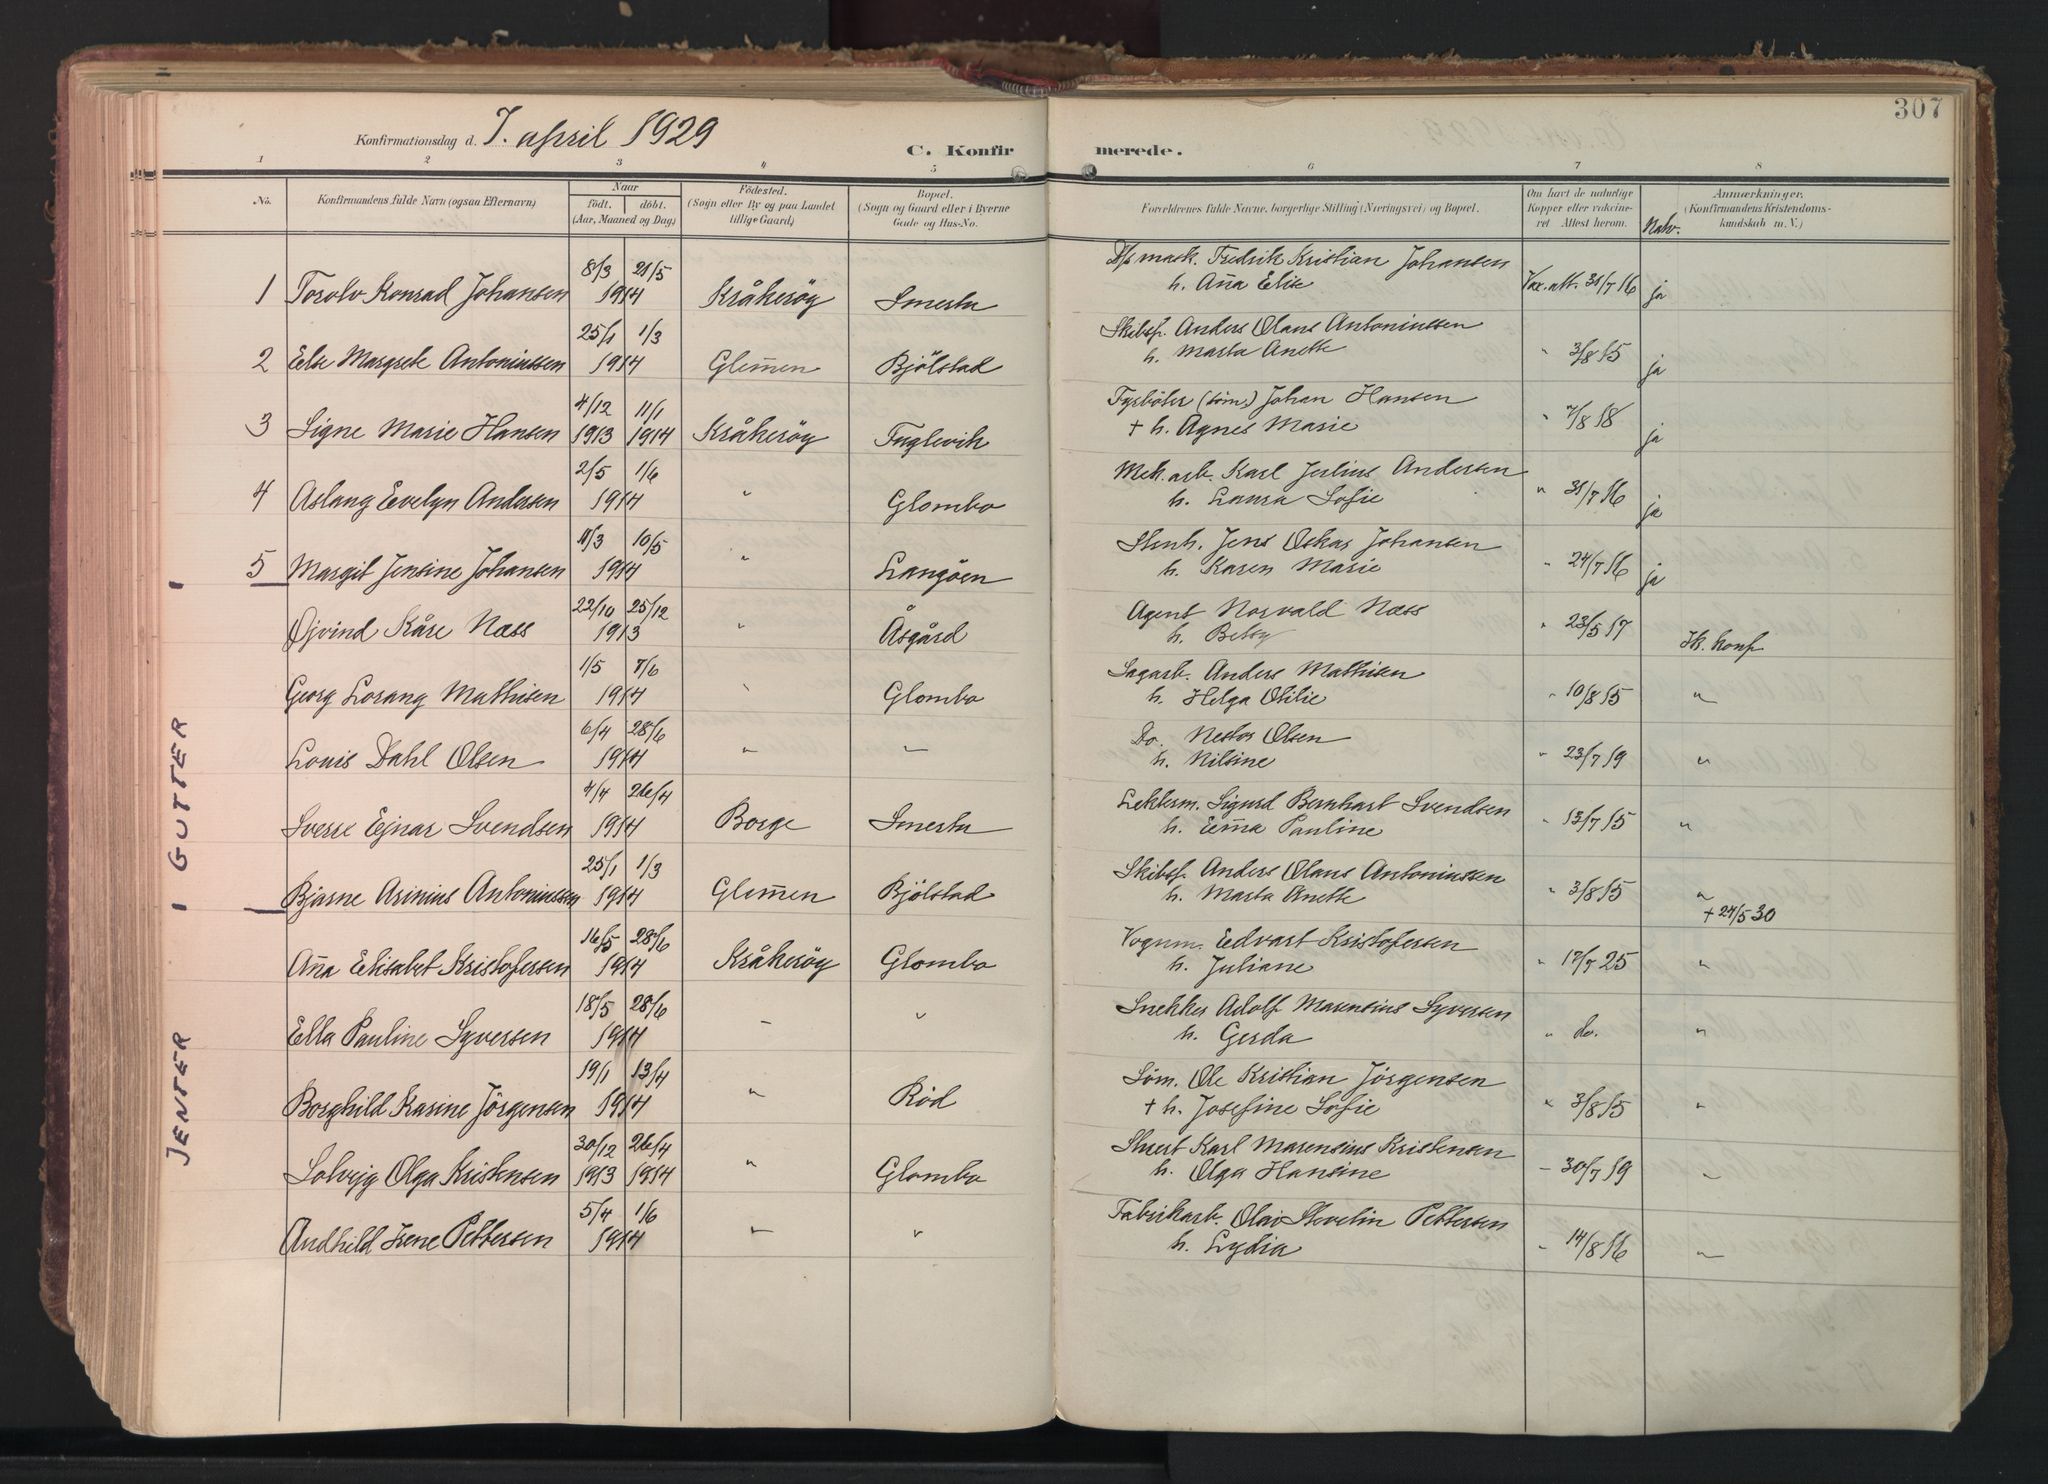 307
Konfirmationsdag d. 7. april 1929
C. Konfir merede.
1 2 3 4 5 6 7 8
No. Konfirmandens fulde Navn (ogsaa Efternavn) Naar födt. döbt. (Aar, Maaned og Dag) Födested. (Sogn eller By og paa Landet tillige Gaard) Bopæl. (Sogn og Gaard eller i Byerne Gade og Hus-No. Forældrenes fulde Navne, borgerlige Stilling (Næringsvei) og Bopæl. Om havt de naturlige Kopper eller vakcineret Attest herom. Natv. Anmærkninger. (Konfirmandens Kristendomskundskab m. V.)
1 Torolv Konrad Johansen 8/3 1914 21/5 Kråkeröy Smertu D/s mask. Fredrik Kristian Johansen
h. Aña Elise Vax. att. 31/7 16 ja
2 Else Margrete Antoniussen 25/1 1914 1/3 Glem̄en Bjölstad Skibsf. Anders Olaus Antoniussen
h. Marta Anette " 3/8 15 ja
3 Signe Marie Hansen 4/12 1913 11/1 1914 Kråkeröy Fuglevik Fyrböter (söm.) Johan Hansen
+ h. Agnes Marie " 7/8 18 ja
4 Aslaug Evelyn Andersen 2/5 1914 1/6 " Glombo Mek. arb. Karl Julius Andersen
h. Laura Sofie " 31/7 16 ja
5 Margit Jensine Johansen 11/3 1914 10/5 " Langöen Stenh. Jens Oskar Johansen
h. Karen Marie " 24/7 16 ja
Øjvind Kåre Næss 22/10 1913 25/12 " Åsgård Agent Norvald Næss
h. Betsy " 23/5 17 Ik. konf
Georg Lorang Mathisen 1/5 1914 7/6 Glombo Sagarb. Anders Mathisen
h. Helga Otilie " 10/8 15 "
Louis Dahl Olsen 6/4 1914 28/6 " " Do. Nestor Olsen
h. Nilsine " 23/7 19 "
Sverre Ejnar Svendsen 4/4 1914 26/4 Borge Smertu Lekterm. Sigurd Bernhart Svendsen
h. Em̄a Pauline " 13/7 15 "
Bjarne Arinius Antoniussen 25/1 1914 1/3 Glem̄en Bjölstad Skibsf. Anders Olaus Antoniussen
h. Marta Anette " 3/8 15 "
+ 24/5 30
Aña Elisabet Kristofersen 16/5 1914 28/6 Kråkeröy Glombo Vognm. Edvart Kristofersen
h. Juliane " 17/7 25 "
Ella Pauline Syversen 18/5 1914 28/6 " " Snekker Adolf Marensius Syversen
h. Gerda " do. "
Borghild Karine Jörgensen 19/1 1914 13/4 " Röd Söm. Ole Kristian Jörgensen
+ h. Josefine Sofie " 3/8 15 "
Solvejg Olga Kristensen 30/12 1913 26/4 1914 " Glombo Karl Marensius Kristensen
h. Olga Hansine " 30/7 19 "
Audhild Irene Pettersen 5/4 1914 1/6 " " Fabrikarb. Olav Pettersen
h. Lydia " 14/8 16 "
I GUTTER I
JENTER